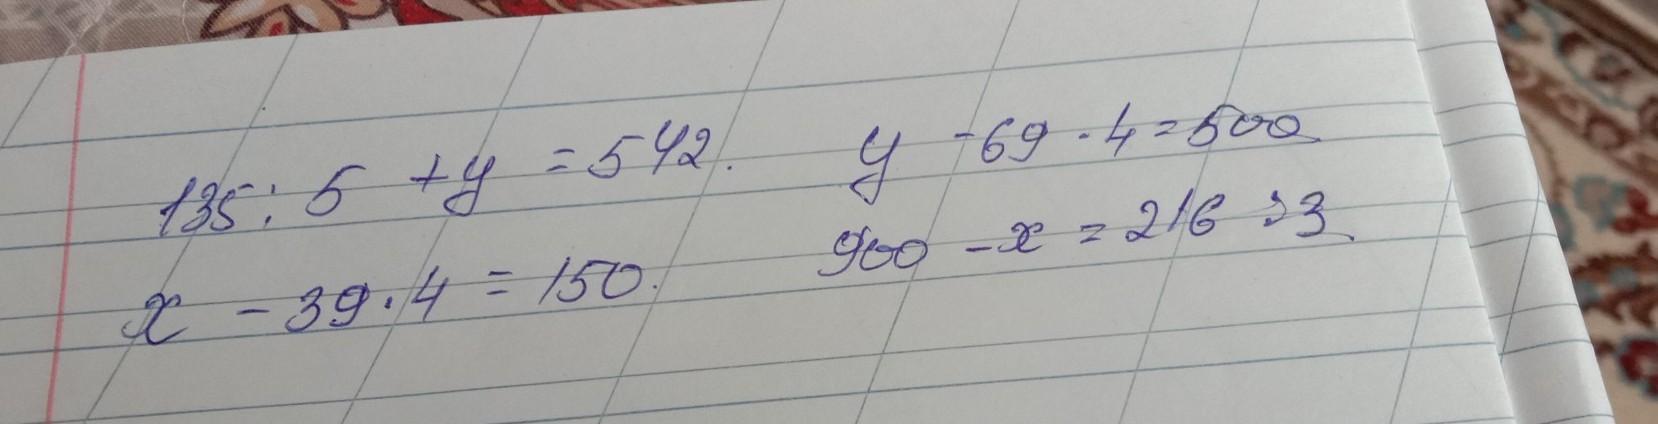 135 : 5 + y = 542.
x - 39 · 4 = 150.
y - 69 · 4 = 500
900 - x = 216 : 3